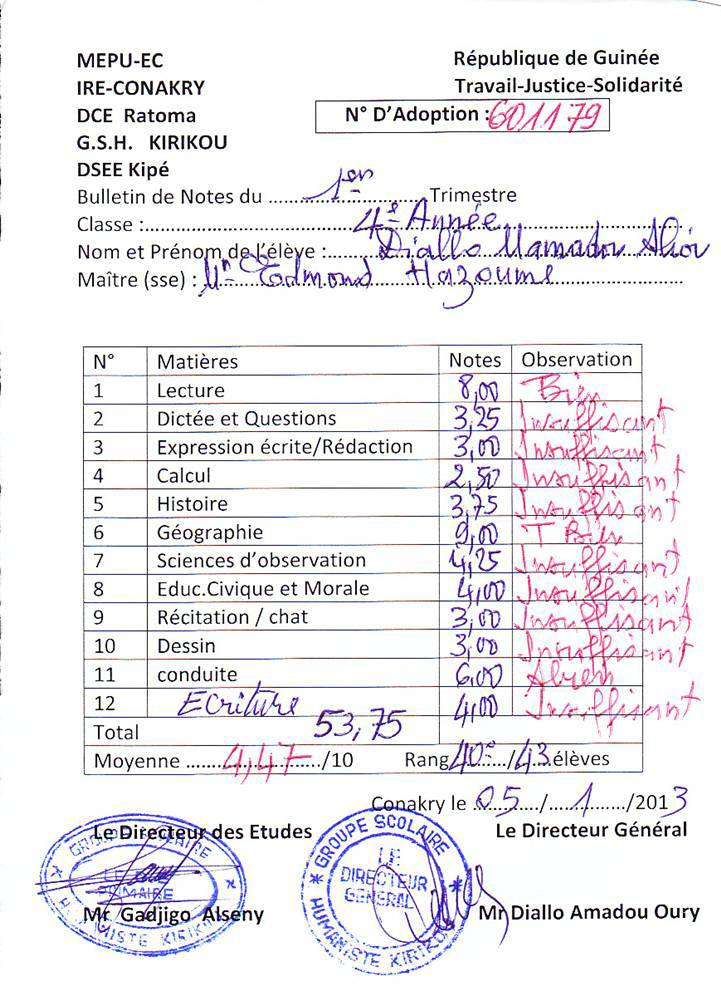 MEPU-EC République de Guinée
IRE-CONAKRY Travail-Justice-Solidarité
DCE Ratoma N° D'Adoption : 601179
G.S.H. KIRIKOU
DSEE Kipé
Bulletin de Notes du 1er Trimestre
Classe : 4e Année
Nom et Prénom de l'élève : Diallo Mamadou Aliou
Maître (sse) : Mr Edmond Hazoume
N° Matières Notes Observation
1 Lecture 8,00 Bien
2 Dictée et Questions 3,25 Insuffisant
3 Expression écrite/Rédaction 3,00 Insuffisant
4 Calcul 2,50 Insuffisant
5 Histoire 3,75 Insuffisant
6 Géographie 9,00 T Bien
7 Sciences d'observation 4,25 Insuffisant
8 Educ.Civique et Morale 4,00 Insuffisant
9 Récitation / chat 3,00 Insuffisant
10 Dessin 3,00 Insuffisant
11 conduite 6,00 ABien
12 Ecriture 4,00 Insuffisant
Total 53,75
Moyenne 4,47/10 Rang 40e/43 élèves
Conakry le 05/1/2013
Le Directeur des Etudes Le Directeur Général
GROUPE SCOLAIRE
HUMANISTE KIRIKOU
PRIMAIRE
GROUPE SCOLAIRE
LE
DIRECTEUR
GENERAL
HUMANISTE KIRIKOU
Mr Gadjigo Alseny Mr Diallo Amadou Oury